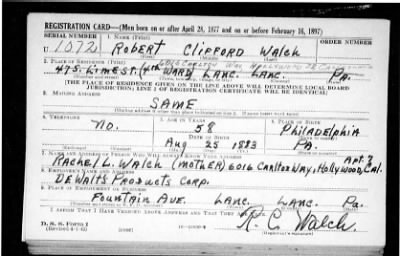 REGISTRATION CARD—(Men born on or after April 28, 1877 and on or before February 16, 1897)
SERIAL NUMBER 1. NAME (Print) ORDER NUMBER
U 1072 ROBERT CLIFFORD WALCH
(First) (Middle) (Last)
2. PLACE OF RESIDENCE (Print)
475 LIME ST. (4th WARD) LANC. LANC. PA.
(THE PLACE OF RESIDENCE GIVEN ON THE LINE ABOVE WILL DETERMINE LOCAL BOARD
JURISDICTION; LINE 2 OF REGISTRATION CERTIFICATE WILL BE IDENTICAL)
3. MAILING ADDRESS
SAME
4. TELEPHONE 5. AGE IN YEARS 6. PLACE OF BIRTH
NO. 58 PHILADELPHIA
DATE OF BIRTH
AUG 25 1883 PA.
7. NAME AND ADDRESS OF PERSON WHO WILL ALWAYS KNOW YOUR ADDRESS APT. 3
RACHEL L. WALCH (MOTHER) 6016 CARLTON WAY, HOLLYWOOD, CAL.
8. EMPLOYER'S NAME AND ADDRESS
DEWALTS PRODUCTS CORP.
9. PLACE OF EMPLOYMENT OR BUSINESS
FOUNTAIN AVE. LANC. LANC. PA.
I AFFIRM THAT I HAVE VERIFIED ABOVE ANSWERS AND THAT THEY ARE TRUE.
D. S. S. Form 1
R. C. Walch
(Registrant's signature)